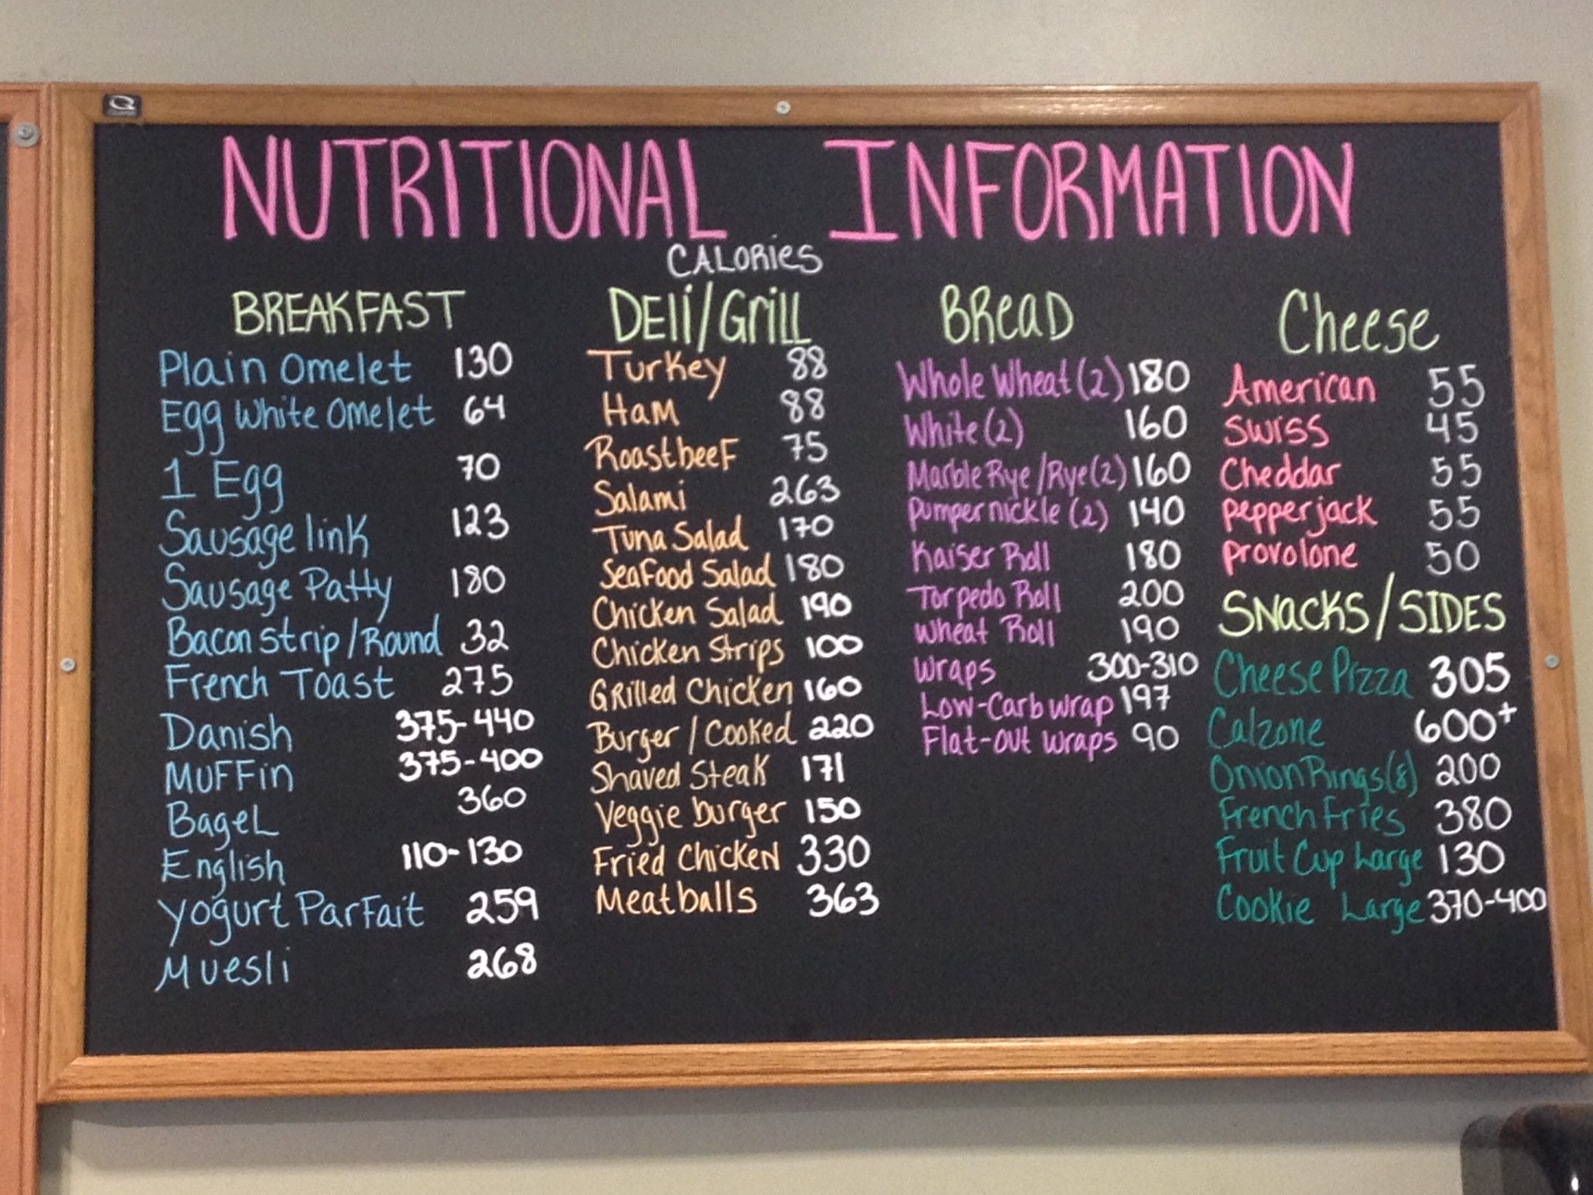 NUTRITIONAL INFORMATION
CALORies
BREAKFAST
Plain Omelet 130
Egg White Omelet 64
1 Egg 70
Sausage link 123
Sausage Patty 180
Bacon strip/Round 32
French Toast 275
Danish 375-440
MuFFin 375-400
BageL 360
English 110-130
Yogurt ParFait 259
Muesli 268
Deli/Grill
Turkey 88
Ham 88
RoastbeeF 75
Salami 263
Tuna Salad 170
SeaFood Salad 180
Chicken Salad 190
Chicken Strips 100
GRilled Chicken 160
Burger/Cooked 220
Shaved Steak 171
Veggie burger 150
Fried Chicken 330
Meatballs 363
BReaD
Whole Wheat (2) 180
White (2) 160
Marble Rye/Rye (2) 160
Pumpernickle (2) 140
Kaiser Roll 180
Torpedo Roll 200
Wheat Roll 190
Wraps 300-310
Low-Carb wrap 197
Flat-out wraps 90
Cheese
American 55
Swiss 45
Cheddar 55
Pepperjack 55
Provolone 50
SNACKS/SIDES
Cheese Pizza 305
Calzone 600+
Onion Rings (8) 200
French Fries 380
Fruit Cup Large 130
Cookie Large 370-400